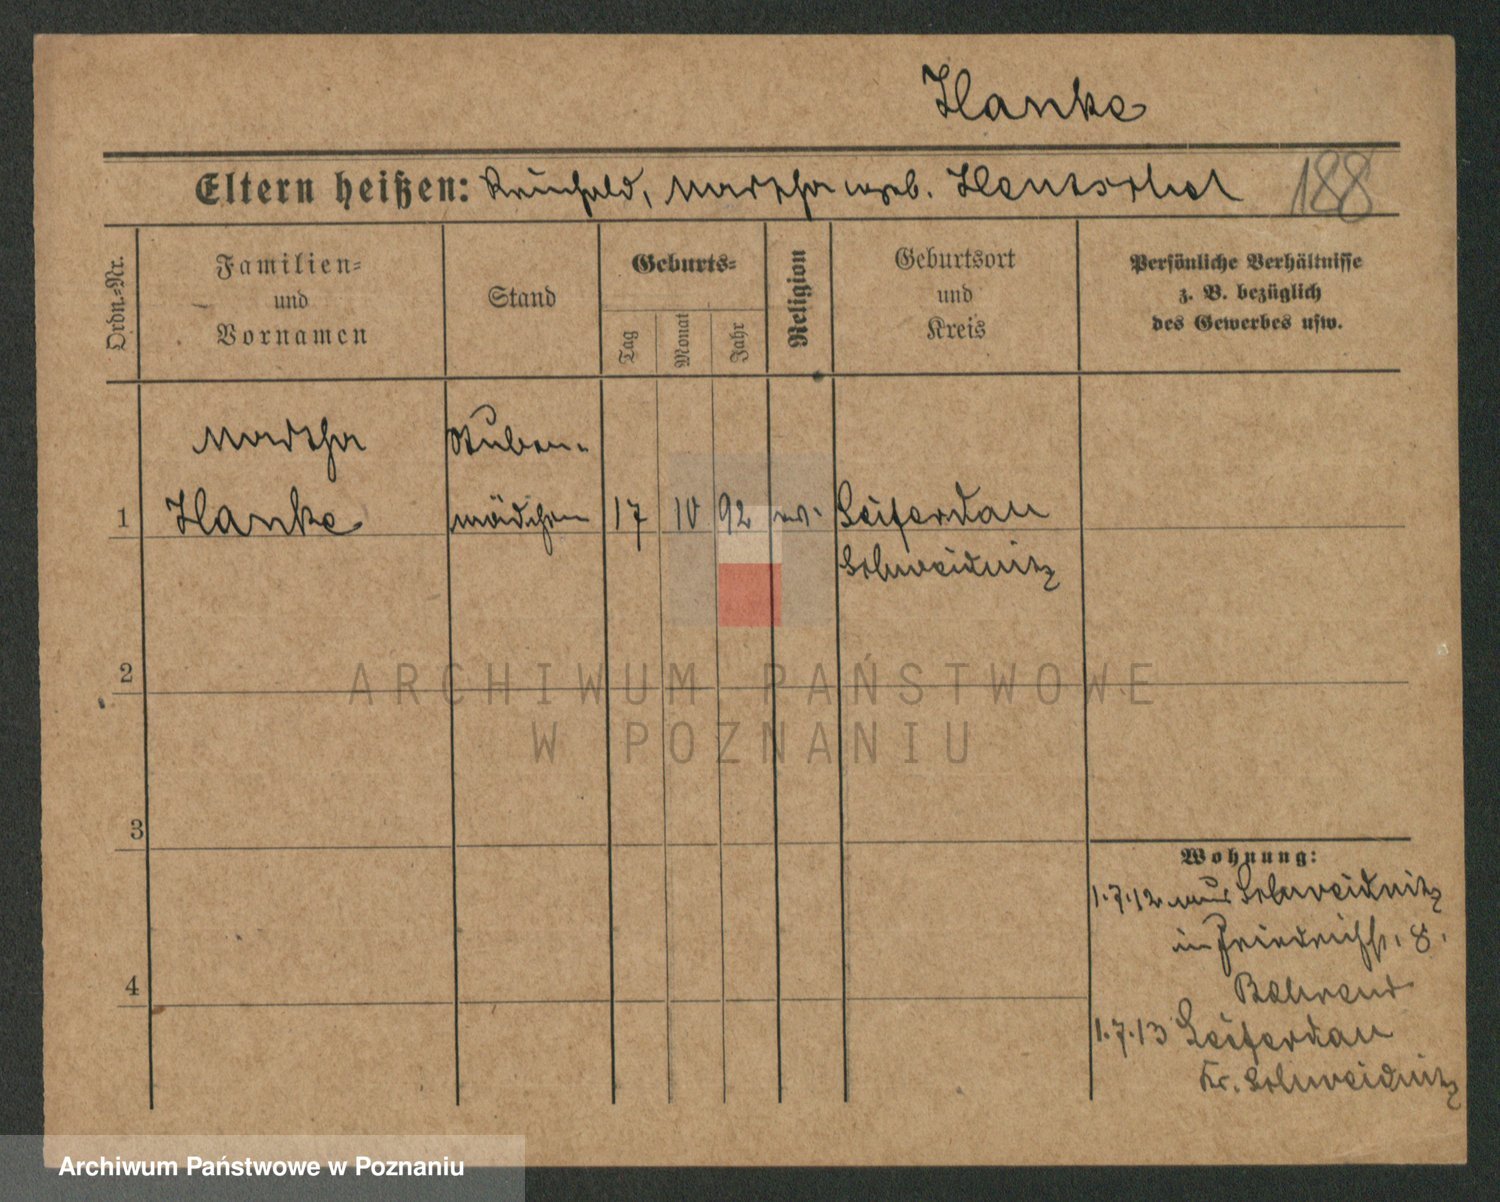 Hanke
Eltern heißen: Reinhold, Martha geb. Hentschel 188
Ordn.-Nr.
Familien-
und
Vornamen
Stand
Geburts-
Tag
Monat
Jahr
Religion
Geburtsort
und
Kreis
Persönliche Verhältnisse
z. B. bezüglich
des Gewerbes usw.
Martha Stuben-
1 Hanke mädchen 17 10 92 ev. Leiferdau
Schweidnitz
2
3
4
Wohnung:
1.7.12 aus Schweidnitz
in Friedrichstr. 8.
Behrend
1.7.13 Leiferdau
Kr. Schweidnitz
ARCHIWUM PAŃSTWOWE
W POZNANIU
Archiwum Państwowe w Poznaniu